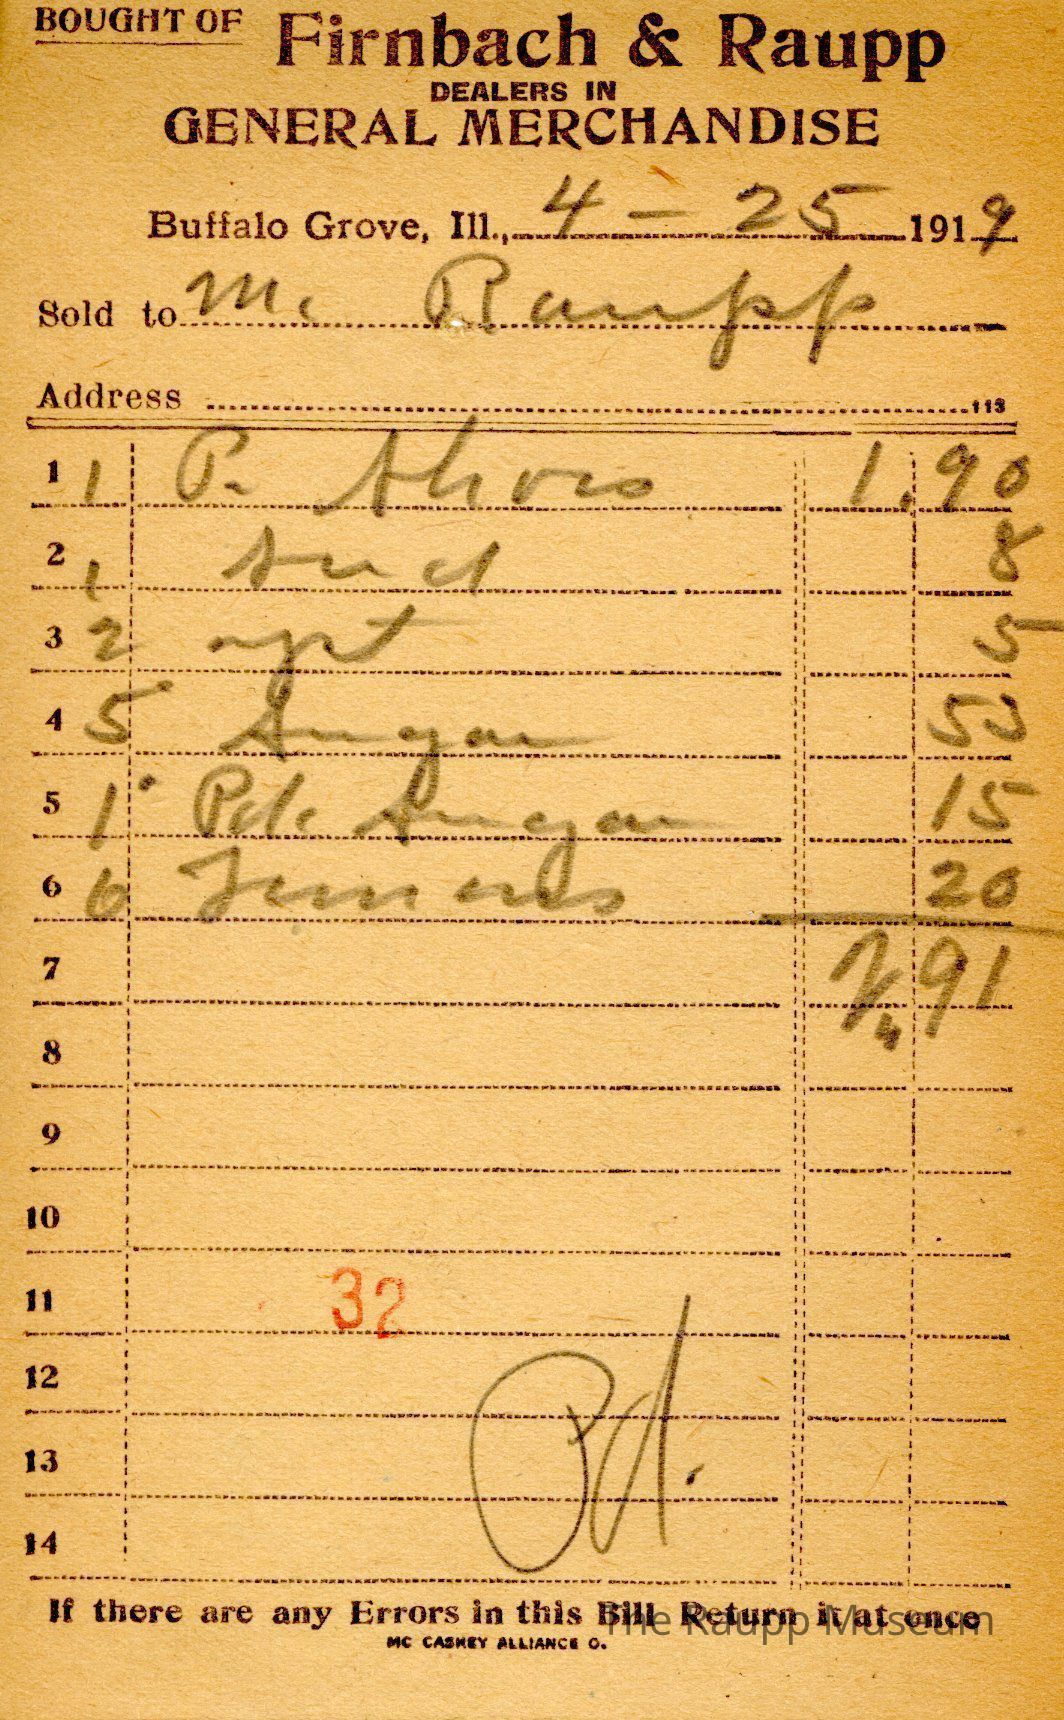 BOUGHT OF Firnbach & Raupp
DEALERS IN
GENERAL MERCHANDISE
Buffalo Grove, Ill., 4 - 25 1919
Sold to Mc Raupp
Address 113
1 1 P. Shoes 1.90
2 1 8
3 2 5
4 5 Sugar 53
5 1 Pck Sugar 15
6 6 20
7 91
8
9
10
11 32
12
13 Pd.
14
If there are any Errors in this Bill Return it at once
MC CASKEY ALLIANCE O.
The Raupp Museum